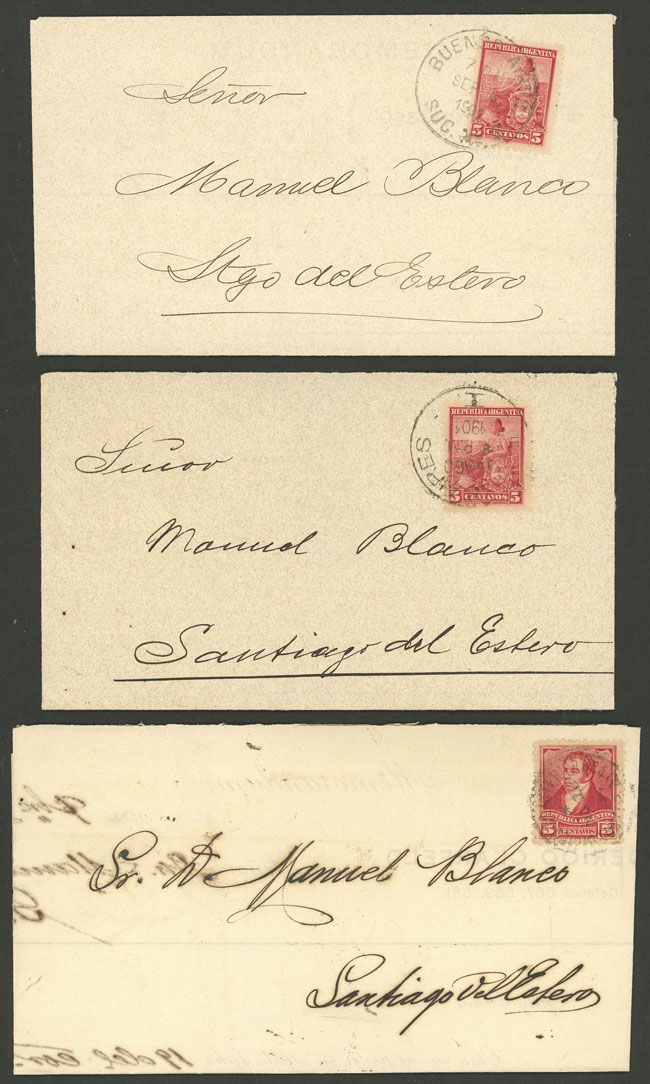 BUENOS
SUC.
REPUBLICA ARGENTINA
5 CENTAVOS 5
Señor
Manuel Blanco
Stgo del Estero
1901
REPUBLICA ARGENTINA
5 CENTAVOS 5
Señor
Manuel Blanco
Santiago del Estero
REPUBLICA ARGENTINA
5 CENTAVOS 5
Sr. D. Manuel Blanco
Defensa
Santiago del Estero